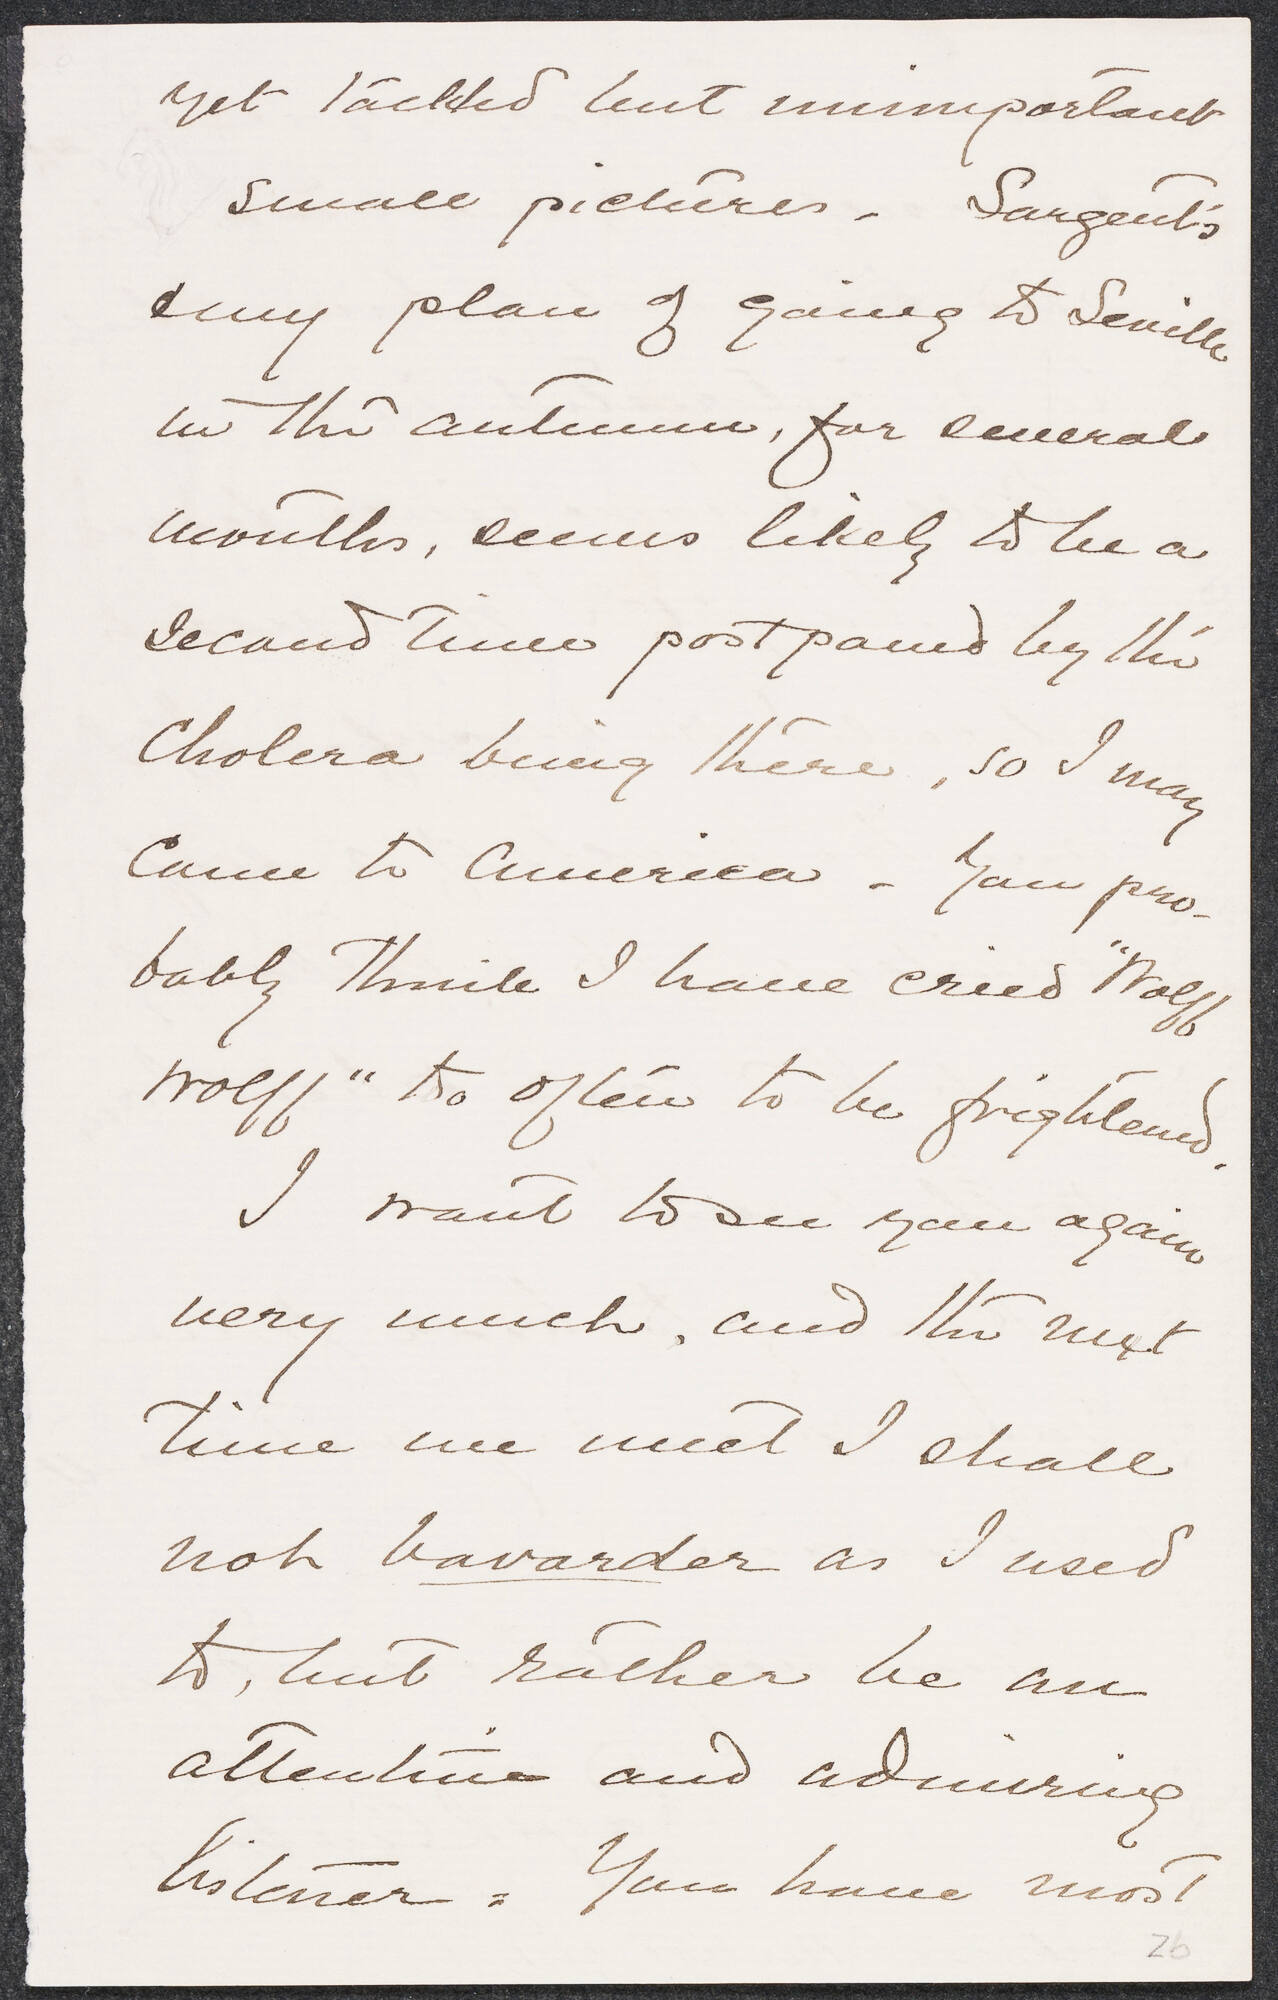 yet tackled but unimportant
small pictures. Sargent's
& my plan of going to Seville
in the autumn, for several
months, seems likely to be a
second time postponed by the
Cholera being there, so I may
come to America. You pro-
bably think I have cried "Wolff
Wolff" too often to be frightened.
I want to see you again
very much, and the next
time we meet I shall
not bavarder as I used
to, but rather be an
attentive and admiring
listener. You have most
26